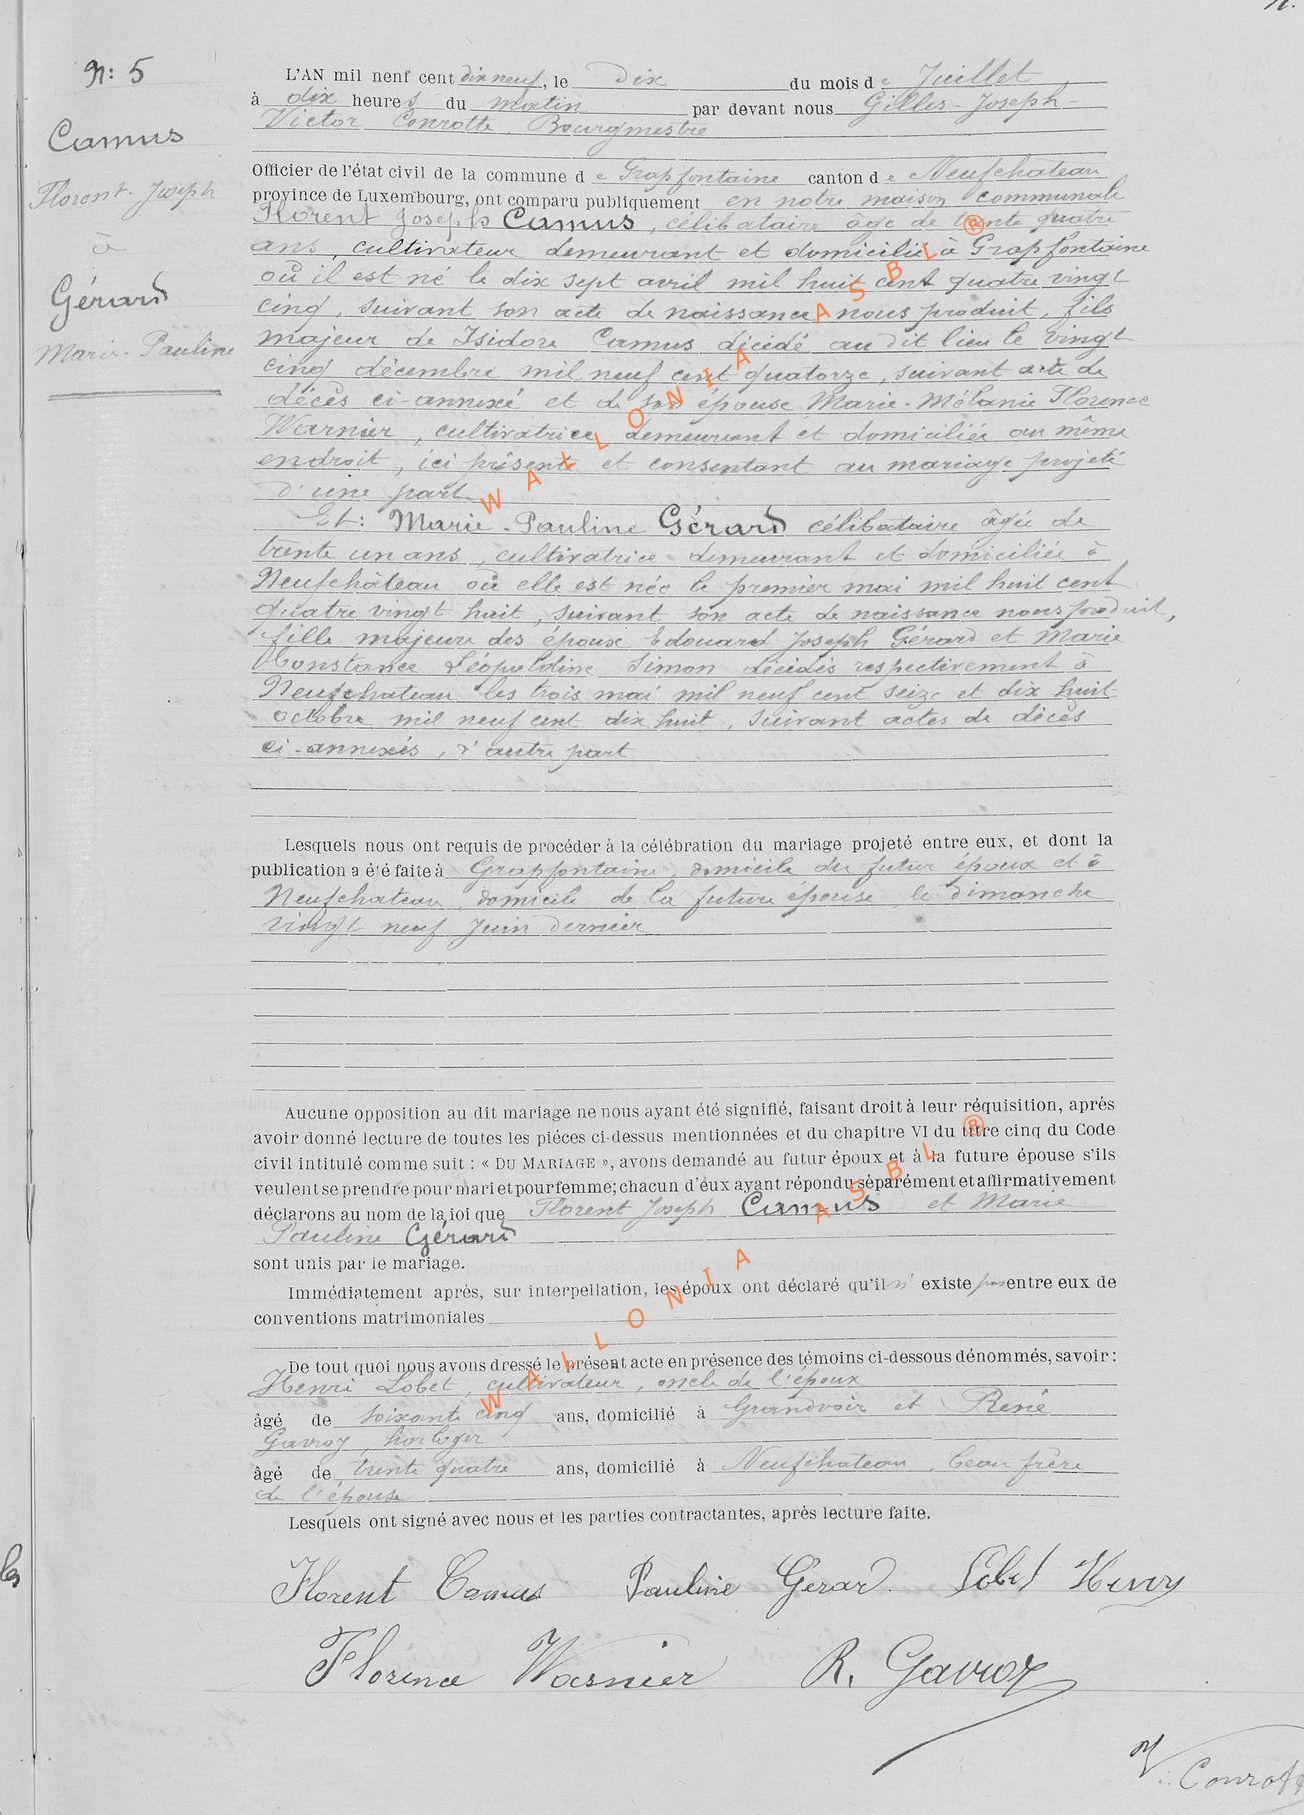 N: 5
Camus
Florent-Joseph
à
Gérard
Marie-Pauline
L'AN mil nenf cent dix neuf, le dix du mois de Juillet
à dix heures du matin par devant nous Gilles-Joseph-
Victor Conrotte Bourgmestre
Officier de l'état civil de la commune de Grapfontaine canton de Neufchateau
province de Luxembourg, ont comparu publiquement en notre maison communale
Florent Joseph Camus, célibataire âgé de trente quatre
ans, cultivateur demeurant et domicilié à Grapfontaine
où il est né le dix sept avril mil huit cent quatre vingt
cinq, suivant son acte de naissance nous produit, fils
majeur de Isidore Camus décédé au dit lieu le vingt
cinq décembre mil neuf cent quatorze, suivant acte de
décès ci-annexé et de son épouse Marie-Mélanie Florence
Warnier, cultivatrice demeurant et domiciliée au même
endroit, ici présente et consentant au mariage projeté
d'une part
Et: Marie-Pauline Gérard célibataire âgée de
trente un ans, cultivatrice demeurant et domiciliée à
Neufchâteau où elle est née le premier mai mil huit cent
quatre vingt huit, suivant son acte de naissance nous produit,
fille majeure des époux Edouard Joseph Gérard et Marie
Constance Léopoldine Simon décédés respectivement à
Neufchateau les trois mai mil neuf cent seize et dix huit
octobre mil neuf cent dix huit, suivant actes de décès
ci-annexés, d'autre part
Lesquels nous ont requis de procéder à la célébration du mariage projeté entre eux, et dont la
publication a été faite à Grapfontaine, domicile du futur époux et à
Neufchateau, domicile de la future épouse, le dimanche
vingt neuf Juin dernier
Aucune opposition au dit mariage ne nous ayant été signifié, faisant droit à leur réquisition, après
avoir donné lecture de toutes les piéces ci-dessus mentionnées et du chapitre VI du titre cinq du Code
civil intitulé comme suit : « DU MARIAGE », avons demandé au futur époux et à la future épouse s'ils
veulent se prendre pour mari et pour femme; chacun d'eux ayant répondu séparément et affirmativement
déclarons au nom de la ioi que Florent Joseph Camus et Marie
Pauline Gérard
sont unis par le mariage.
Immédiatement après, sur interpellation, les époux ont déclaré qu'il n'existe pas entre eux de
conventions matrimoniales
De tout quoi nous avons dressé le présent acte en présence des témoins ci-dessous dénommés, savoir :
Henri Lobet, cultivateur, oncle de l'époux
âgé de soixante cinq ans, domicilié à Grandvoir et René
Gavroy, horloger
âgé de trente quatre ans, domicilié à Neufchateau, beau frère
de l'épouse
Lesquels ont signé avec nous et les parties contractantes, après lecture faite.
Florent Camus Pauline Gérard. Lobet Henry
Florence Warnier R. Gavroy
V. Conrotte
WALLONIA ASBL ®
WALLONIA ASBL ®